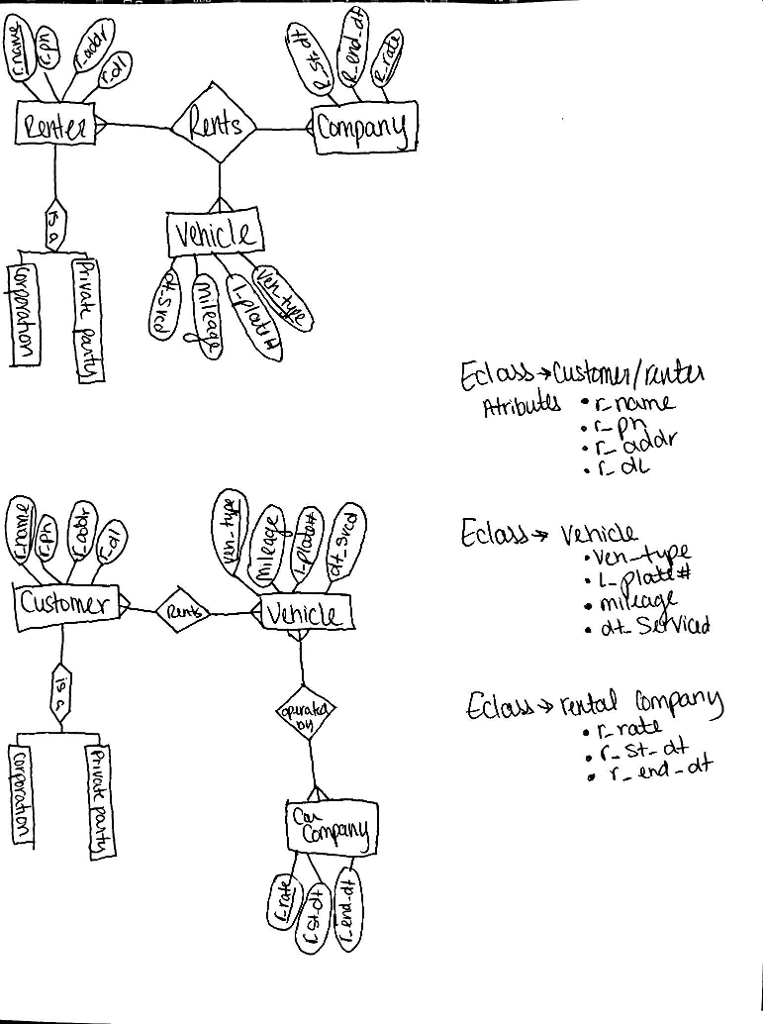 r_name
r_ph
r_addr
r_dl
R_st_dt
R_end_dt
R_rate
Renter
Rents
Company
is a
Vehicle
Corporation
Private party
dt_Srvcd
mileage
L_plate#
Veh_type
Eclass → Customer/renter
Atributes • r_name
• r_ph
• r_addr
• r_dL
r_name
r_ph
r_addr
r_dl
veh_type
mileage
L_plate#
dt_srvcd
Eclass → Vehicle
• Veh_type
• L_plate#
• mileage
• dt_Serviced
Customer
Rents
Vehicle
is a
operated
by
Eclass → rental Company
• r_rate
• r_st_dt
• r_end_dt
Corporation
Private party
Car
Company
r_rate
r_st_dt
r_end_dt